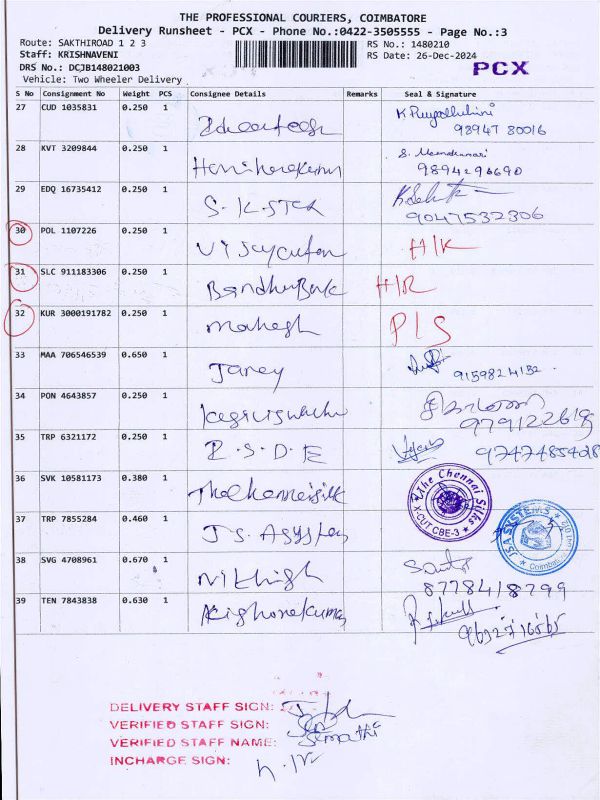 THE PROFESSIONAL COURIERS, COIMBATORE
Delivery Runsheet - PCX - Phone No.:0422-3505555 - Page No.:3
Route: SAKTHIROAD 1 2 3 RS No.: 1480210
Staff: KRISHNAVENI RS Date: 26-Dec-2024
DRS No.: DCJB148021003 PCX
Vehicle: Two Wheeler Delivery
S No Consignment No Weight PCS Consignee Details Remarks Seal & Signature
27 CUD 1035831 0.250 1
98947 80016
28 KVT 3209844 0.250 1 Hariharakumar
9894296690
29 EDQ 16735412 0.250 1 S.K. STER
9047532306
30 POL 1107226 0.250 1 H/K
31 SLC 911183306 0.250 1 H/R
32 KUR 3000191782 0.250 1 Mahesh P/S
33 MAA 706546539 0.650 1 Janey
9159824152
34 PON 4643857 0.250 1
35 TRP 6321172 0.250 1 R.S.D.E
9747485428
36 SVK 10581173 0.380 1 Thechennaisilk The Chennai Silks
X-CUT CBE-3
37 TRP 7855284 0.460 1 JSA SYSTEMS
Coimbatore
38 SVG 4708961 0.670 1 Nithish
8778418799
39 TEN 7843838 0.630 1 Kishorekumar
DELIVERY STAFF SIGN:
VERIFIED STAFF SIGN:
VERIFIED STAFF NAME: Semathi
INCHARGE SIGN: